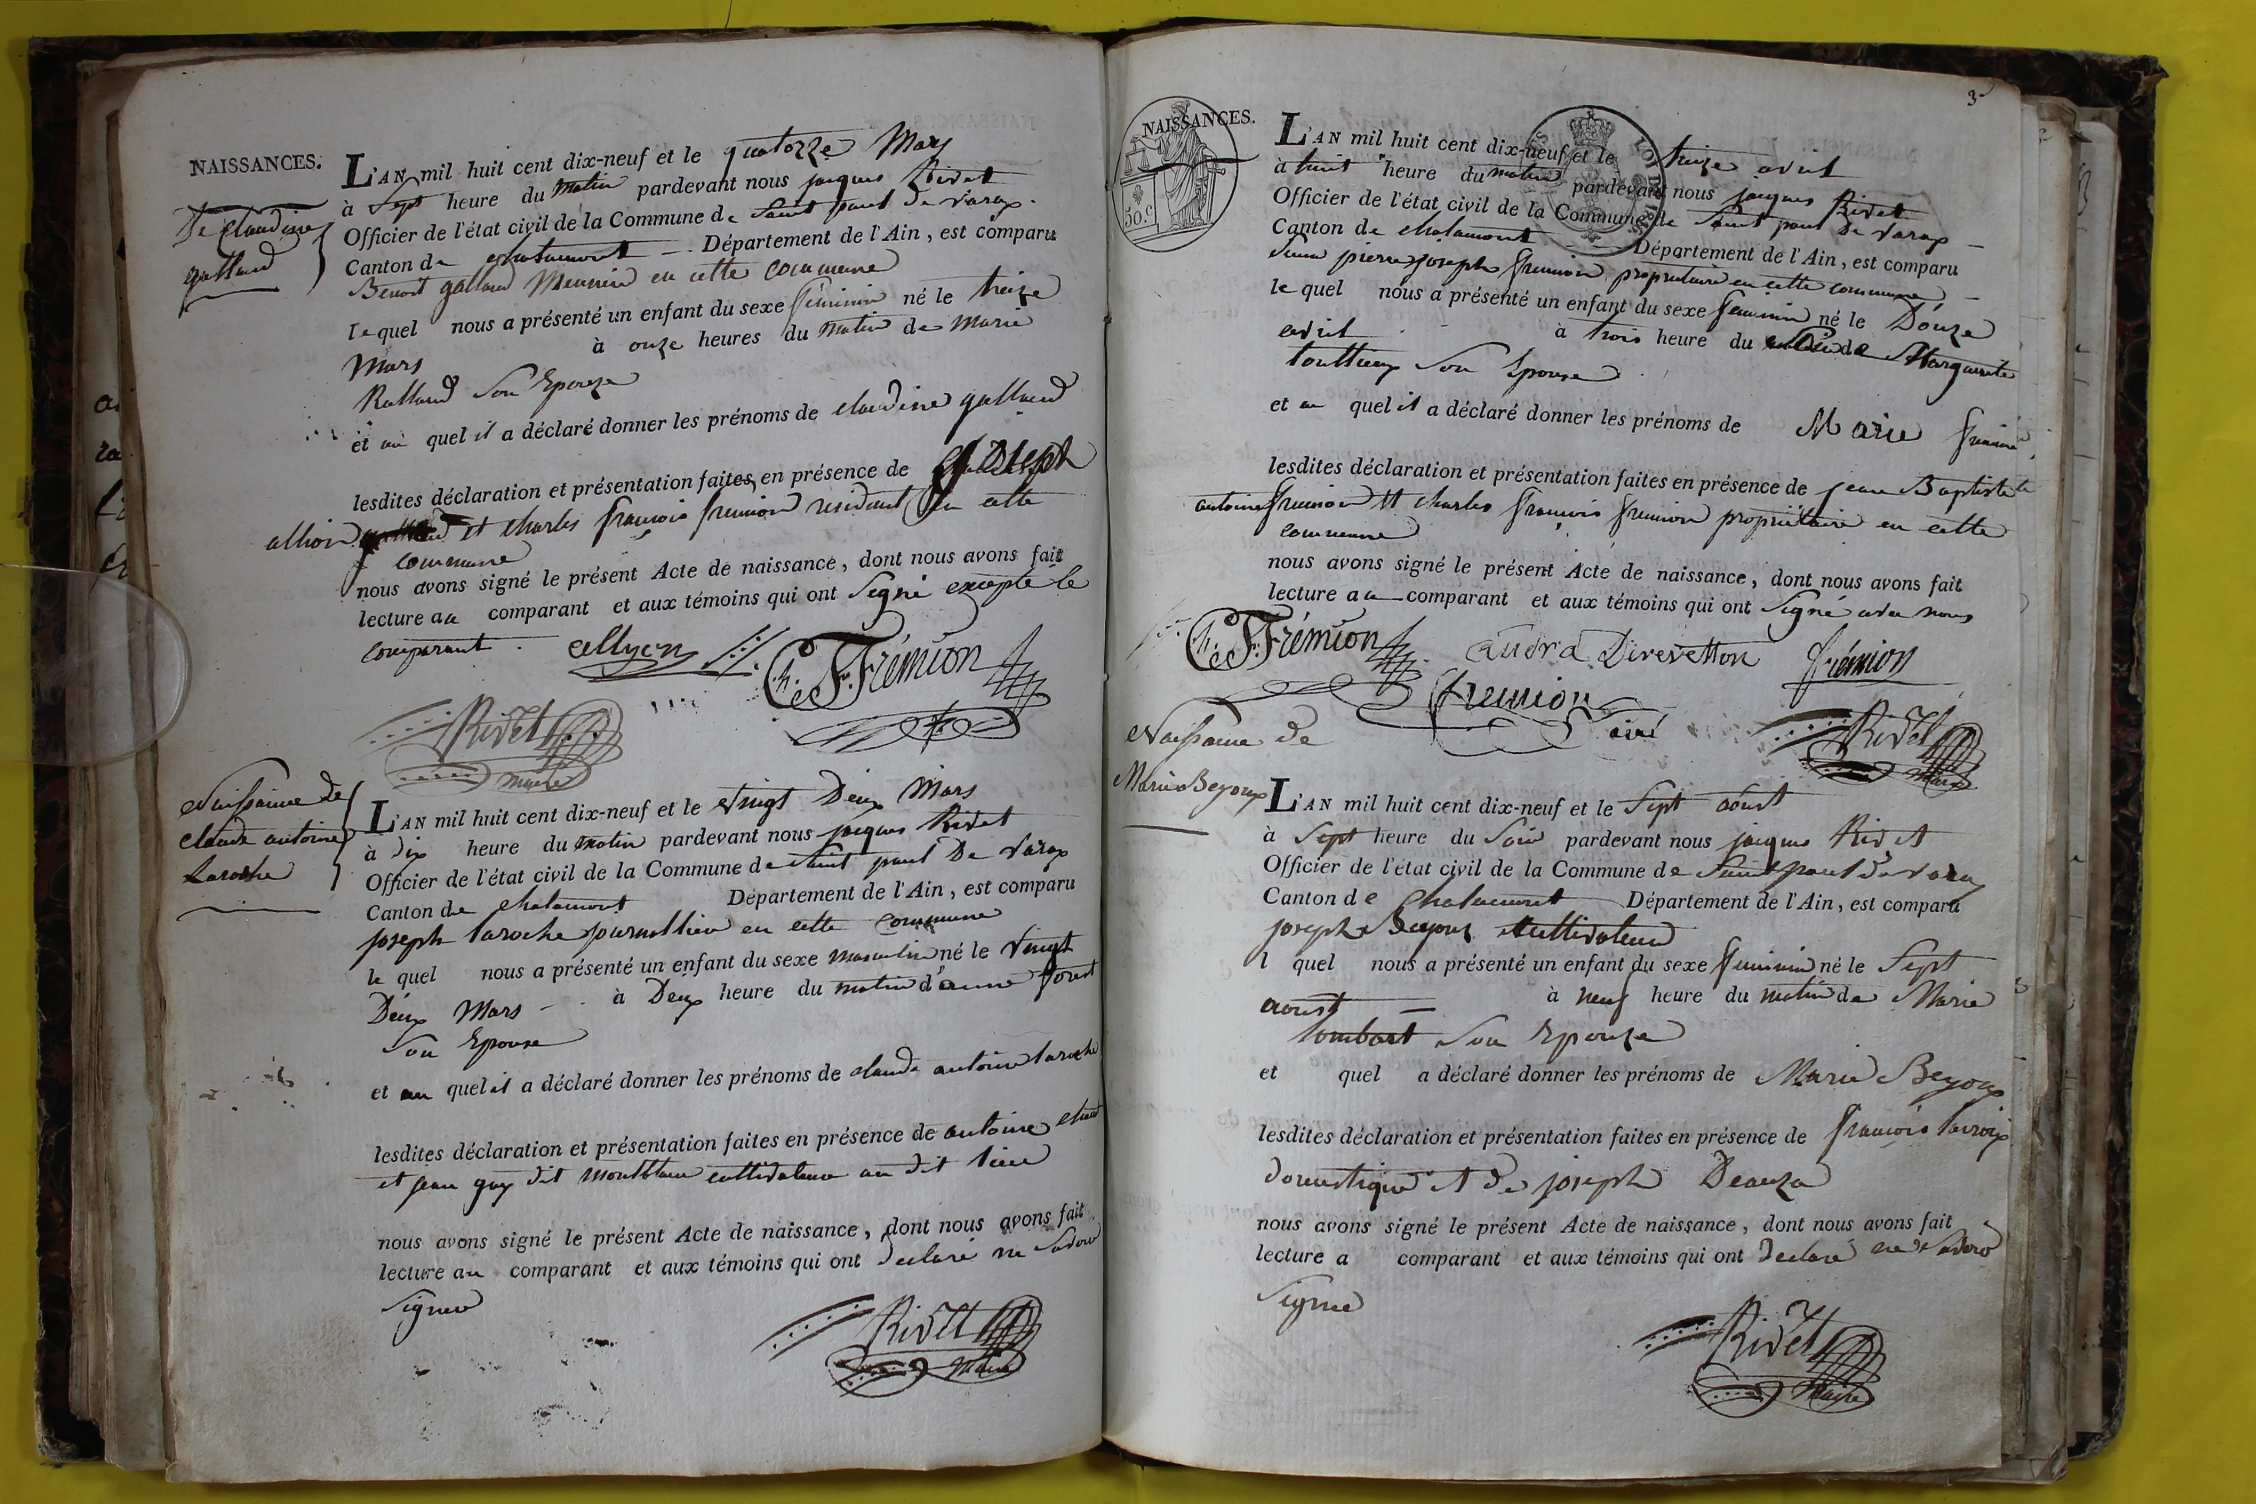 NAISSANCES.
De claudine
galland
L'AN mil huit cent dix-neuf et le quatorze Mars
à Sept heure du Matin pardevant nous jacques Rivet
Officier de l'état civil de la Commune de Saint paul De varax.
Canton de chalamont — Département de l'Ain, est comparu
Benoit galland Meunier en cette commune
le quel nous a présenté un enfant du sexe féminin né le treize
Mars à onze heures du matin de Marie
Rolland Son Epouze
et au quel il a déclaré donner les prénoms de claudine galland
lesdites déclaration et présentation faites en présence de joseph
allion et charles françois fremion résidant en cette
commune
nous avons signé le présent Acte de naissance, dont nous avons fait
lecture au comparant et aux témoins qui ont Signé excepté le
comparant.
allyon
Ch. F. Frémion
Rivet
maire
Naissance de
claude antoine
Laroche
L'AN mil huit cent dix-neuf et le vingt Deux Mars
à dix heure du matin pardevant nous jacques Rivet
Officier de l'état civil de la Commune de Saint paul De varax
Canton de chalamont Département de l'Ain, est comparu
joseph laroche journallier en cette commune
le quel nous a présenté un enfant du sexe masculin né le vingt
Deux Mars — à Deux heure du matin d'anne forest
Son Epouse
et au quel il a déclaré donner les prénoms de claude antoine laroche
lesdites déclaration et présentation faites en présence de antoine
et jean guy dit montblanc cultivateur au dit lieu
nous avons signé le présent Acte de naissance, dont nous avons fait
lecture au comparant et aux témoins qui ont déclaré ne Savoir
Signer
Rivet
Maire
3
NAISSANCES.
50.c
L'AN mil huit cent dix-neuf et le treize avril
à huit heure du matin pardevant nous jacques Rivet
Officier de l'état civil de la Commune de Saint paul De varax —
Canton de chalamont Département de l'Ain, est comparu
pierre joseph fremion propriétaire en cette commune —
le quel nous a présenté un enfant du sexe feminin né le Douze
avril à trois heure du de Marguerite
Son Epouse
et au quel il a déclaré donner les prénoms de Marie fremion
lesdites déclaration et présentation faites en présence de jean Baptiste
antoine fremion et charles françois fremion propriétaire en cette
commune
nous avons signé le présent Acte de naissance, dont nous avons fait
lecture au comparant et aux témoins qui ont Signé avec nous
Ch. F. Frémion
frémion
fremion
Rivet
Maire
Naissance de
Marie Beyoux
L'AN mil huit cent dix-neuf et le Sept aoust
à Sept heure du Soir pardevant nous jacques Rivet
Officier de l'état civil de la Commune de Saint paul de varax
Canton de Chalamont Département de l'Ain, est comparu
joseph Beyoux Cultivateur
l quel nous a présenté un enfant du sexe feminin né le Sept
aoust — à neuf heure du matin de Marie
lombart Son Epouze
et quel a déclaré donner les prénoms de Marie Beyoux
lesdites déclaration et présentation faites en présence de françois
domestique et de joseph
nous avons signé le présent Acte de naissance, dont nous avons fait
lecture a comparant et aux témoins qui ont declaré ne Savoir
Signer
Rivet
Maire